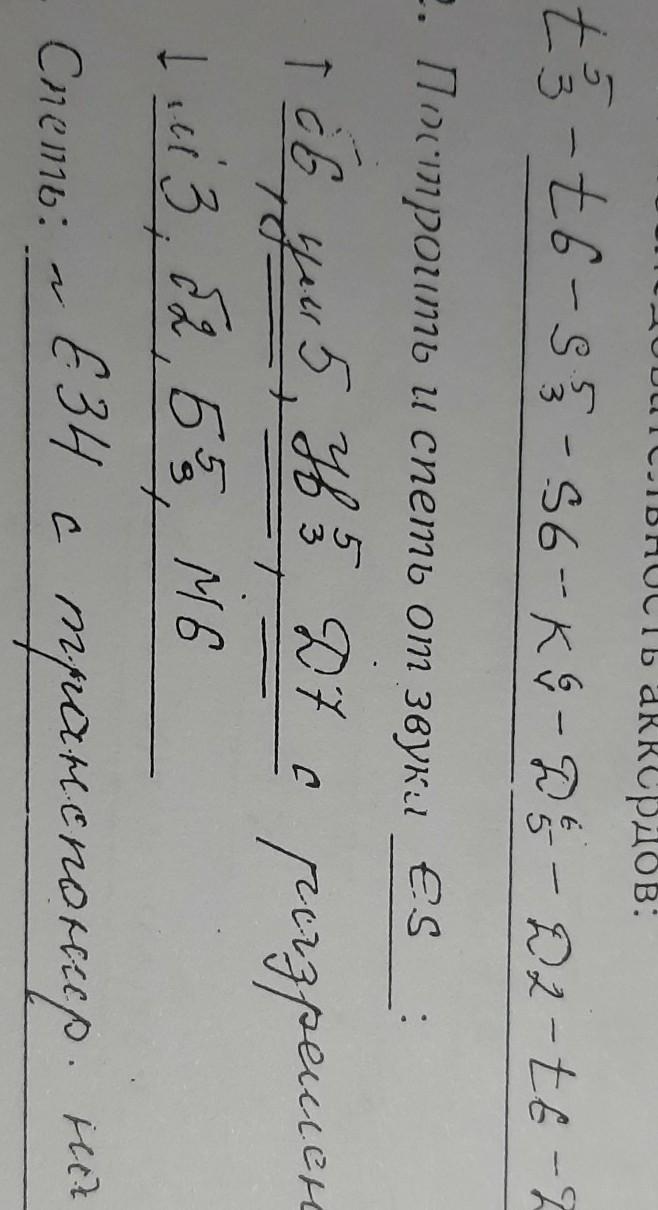 аккордов:
t5/3 – t6 – s5/3 – s6 – K6/4 – D6/5 – D2 – t6 –
2. Построить и спеть от звука es :
↑ б6, ум5, Ув5/3, D7 с разрешен
↓ м3, б2, Б5/3, М6
Спеть: ~ 634 с транспонир. на